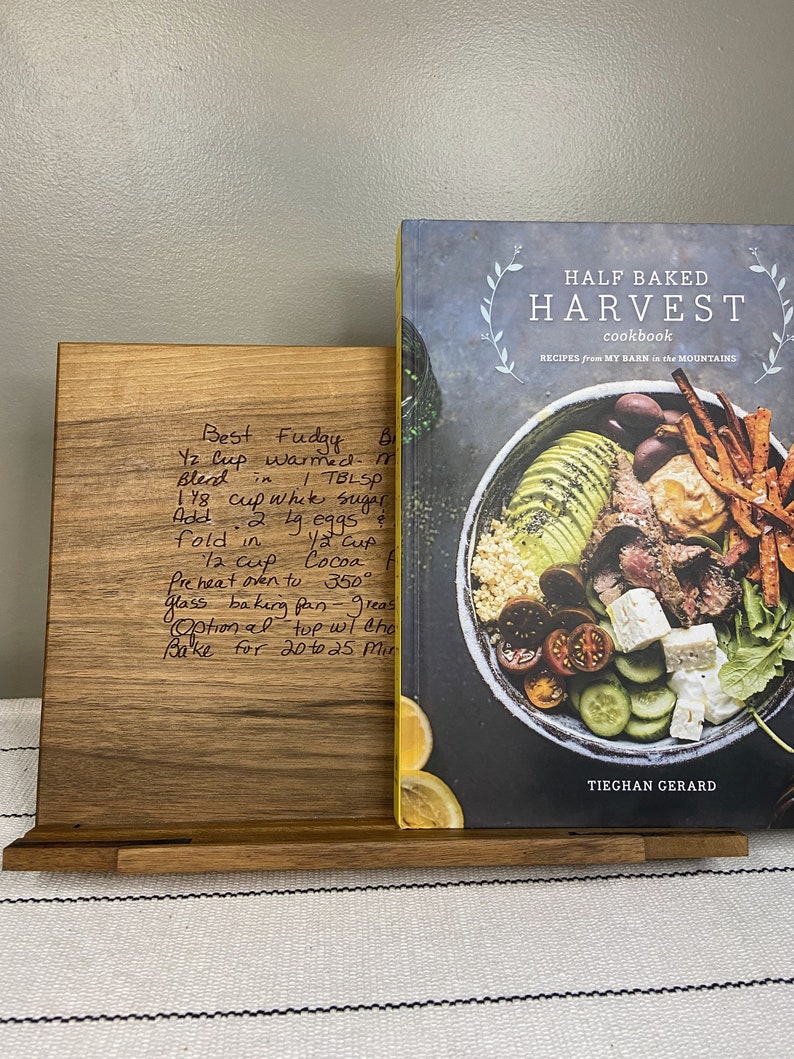 Best Fudgy
1/2 cup warmed-
Blend in 1 TBLSP
1 1/8 cup white sugar
Add 2 lg eggs &
fold in 1/2 cup
1/2 cup Cocoa
Preheat oven to 350°
glass baking pan - greas
Optional top w/ Cho
Bake for 20 to 25 Min
HALF BAKED
HARVEST
cookbook
RECIPES from MY BARN in the MOUNTAINS
TIEGHAN GERARD